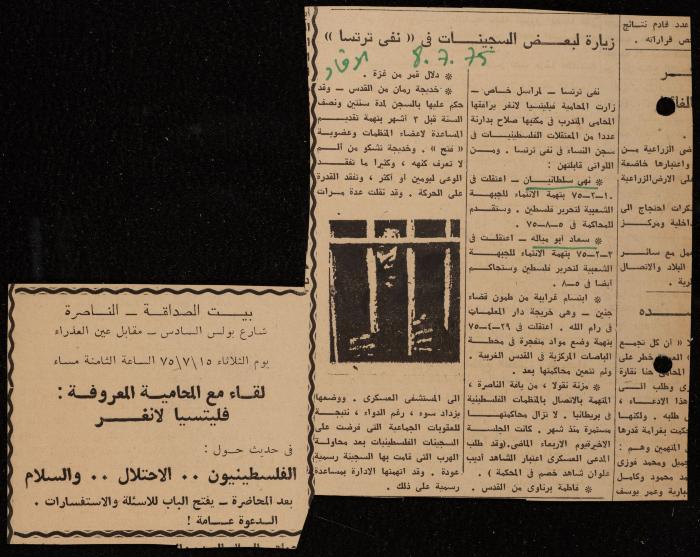 زيارة لبعض السجينات في « نفي ترتسا »
8.7.75
نفي ترتسا ــ لمراسل خاص ــ
زارت المحامية فيليتسيا لانغر يرافقها
المحامي المتدرب في مكتبها صلاح بدارنة
عددا من المعتقلات الفلسطينيات في
سجن النساء في نفي ترتسا . ومن
اللواتي قابلتهن :
* نهى سلطانيان ــ اعتقلت في
١٠ــ٢ــ٧٥ بتهمة الانتماء للجبهة
الشعبية لتحرير فلسطين . وستقدم
للمحاكمة في ٥ــ٨ــ٧٥ .
* سعاد ابو مياله ــ اعتقلت في
٢ــ٢ــ٧٥ بتهمة الانتماء للجبهة
الشعبية لتحرير فلسطين وستحاكم
ايضا في ٥ــ٨ .
* ابتسام غرابية من طمون قضاء
جنين ــ وهي خريجة دار المعلمات
في رام الله . اعتقلت في ٢٩ــ٤ــ٧٥
بتهمة وضع مواد متفجرة في محطة
الباصات المركزية في القدس الغربية .
ولم تتعين محاكمتها بعد .
* مزنة نقولا ، من يافة الناصرة ،
المتهمة بالاتصال بالمنظمات الفلسطينية
في بريطانيا . لا تزال محاكمتها
مستمرة منذ شهر . كانت الجلسة
الاخيرة يوم الاربعاء الماضي . (وقد طلب
المدعي العسكري اعتبار الشاهد أديب
علوان شاهد خصم في المحكمة ) .
* فاطمة برناوي من القدس .
* دلال قمر من غزة .
* خديجة رمان من القدس ــ وقد
حكم عليها بالسجن لمدة سنتين ونصف
السنة قبل ٣ اشهر بتهمة تقديم
المساعدة لاعضاء المنظمات وعضوية
« فتح » . وخديجة تشكو من ألم
لا تعرف كنهه ، وكثيرا ما تفقد
الوعي ليومين او أكثر ، وتفقد القدرة
على الحركة . وقد نقلت عدة مرات
الى المستشفى العسكري . ووضعها
يزداد سوء ، رغم الدواء ، نتيجة
للعقوبات الجماعية التي فرضت على
السجينات الفلسطينيات بعد محاولة
الهرب التي قامت بها السجينة رسمية
عودة . وقد اتهمتها الادارة بمساعدة
رسمية على ذلك .
عدد قادم نتائج
قراراته .
ضي الزراعية من
واعتبارها خاضعة
على الارض الزراعية
كرات احتجاج الى
داخلية ومركز
مل مع سائر
البلاد والاتصال
« ان كل تجمع
خطر على
هذا الادعاء ،
طلبه . ولكنها
بغرامة قدرها
المتهمين وهم :
جميل ومحمد فوزي
محمود وكامل
وعمر يوسف
بيت الصداقة ــ الناصرة
شارع بولس السادس ــ مقابل عين العذراء
يوم الثلاثاء ٧٥/٧/١٥ الساعة الثامنة مساء
لقاء مع المحامية المعروفة :
فليتسيا لانغر
في حديث حول :
الفلسطينيون ٠٠ الاحتلال ٠٠ والسلام
بعد المحاضرة ــ يفتح الباب للاسئلة والاستفسارات .
الدعوة عامة !